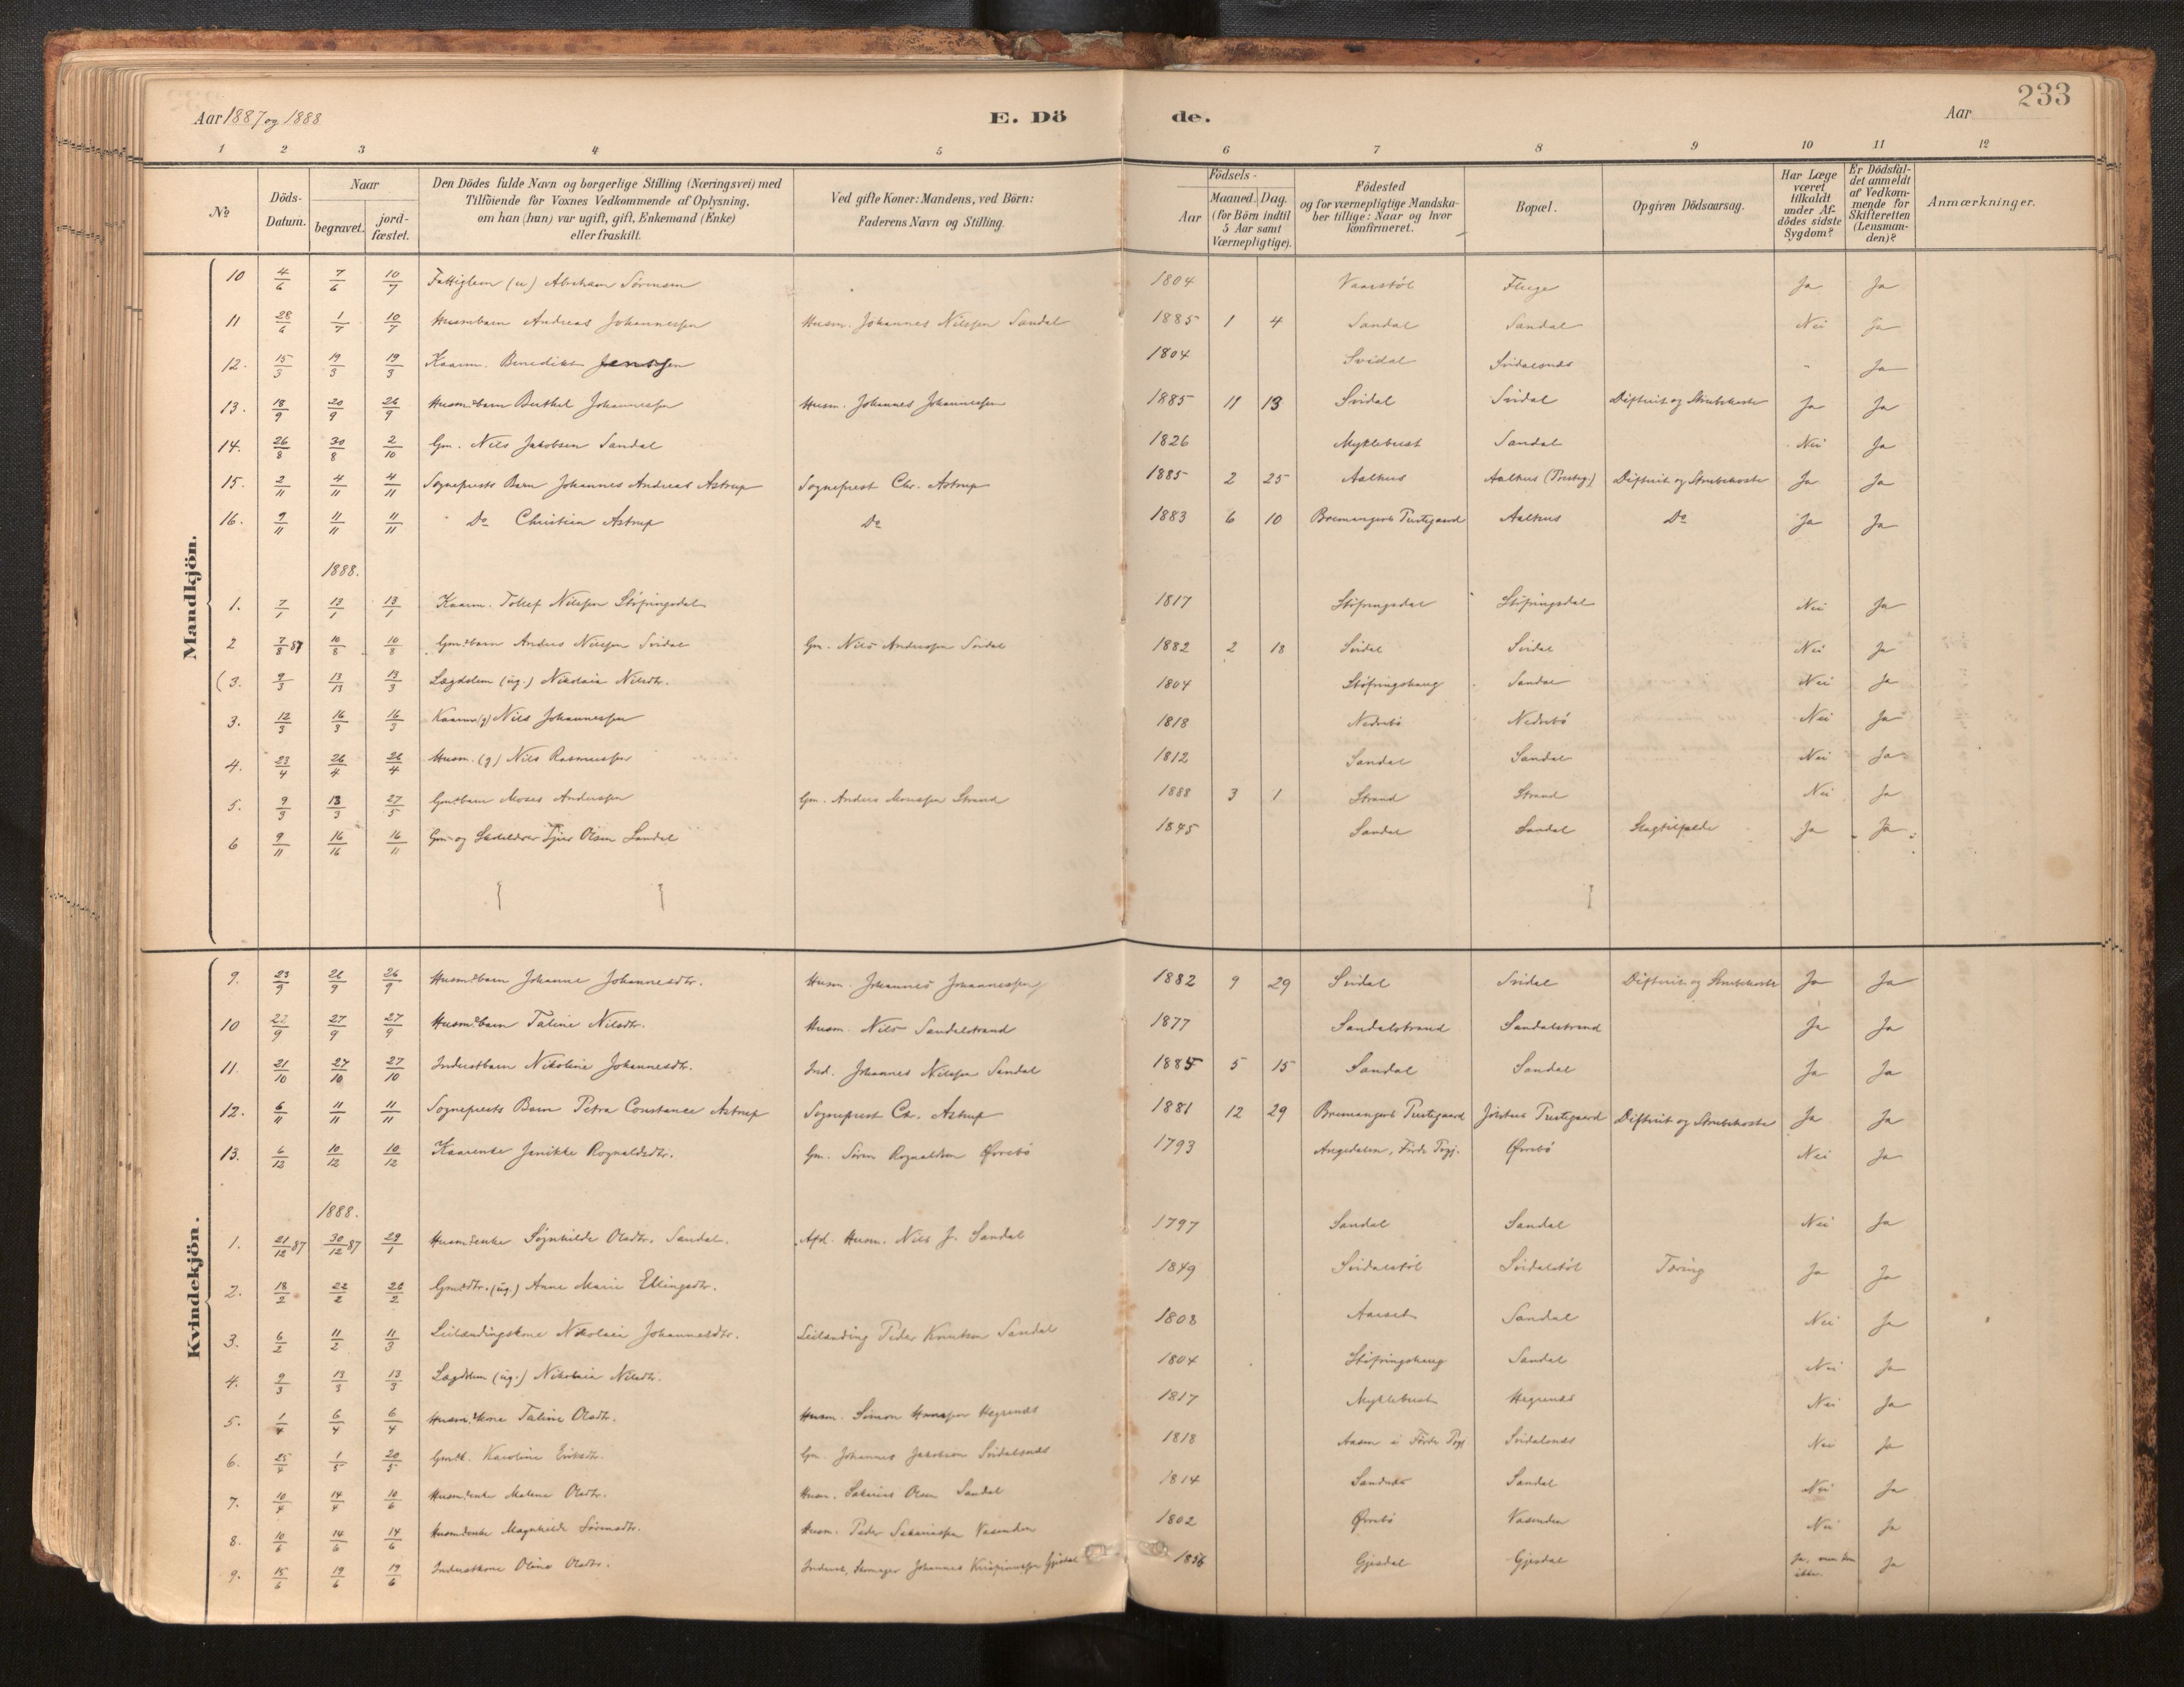 233
Aar 1887 og 1888 E. Dö de. Aar
1 2 3 4 5 6 7 8 9 10 11 12
No
Döds-Datum.
Naar begravet. jordfæstet.
Den Dödes fulde Navn og borgerlige Stilling (Næringsvei) med
Tilföiende for Voxnes Vedkommende af Oplysning,
om han (hun) var ugift, gift, Enkemand (Enke)
eller fraskilt.
Ved gifte Koner: Mandens, ved Börn:
Faderens Navn og Stilling.
Födsels-
Aar Maaned. Dag.
(for Börn indtil
5 Aar samt
Værnepligtige).
Födested
og for værnepligtige Mandska-
ber tillige: Naar og hvor
konfirmeret.
Bopæl.
Opgiven Dödsaarsag.
Har Læge
været
tilkaldt
under Af-
dödes sidste
Sygdom?
Er Dödsfal-
det anmeldt
af Vedkom-
mende for
Skifteretten
(Lensman-
den)?
Anmærkninger.
Mandkjön.
10 4/6 7/6 10/7 Fattiglem (u) Abraham Sørensen 1804 Vaarstöl Fluge Ja Ja
11 28/6 1/7 10/7 Husmbarn Andreas Johannessen Husm. Johannes Nilssen Sandal 1885 1 4 Sandal Sandal Nei Ja
12. 15/3 19/3 19/3 Kaarm. Benedikt Jenssen 1804 Svidal Svidalsnæs " Ja
13. 18/9 20/9 26/9 Husmdbarn Berthel Johannessen Husm. Johannes Johannessen 1885 11 13 Svidal Svidal Difterit og Strubehoste Ja Ja
14. 26/8 30/8 2/10 Gm. Nils Jakobsen Sandal 1826 Myklebust Sandal Nei Ja
15. 2/11 4/11 4/11 Sogneprests Barn Johannes Andreas Astrup Sogneprest Chr. Astrup 1885 2 25 Aalhus Aalhus (Presteg.) Difterit og Strubehoste Ja Ja
16. 9/11 11/11 11/11 Do Christian Astrup Do 1883 6 10 Bremangers Prestegaard Aalhus Do Ja Ja
1888.
1. 7/1 13/1 13/1 Kaarm. Tollef Nilssen Støfringsdal 1817 Støfringsdal Støfringsdal Nei Ja
2 7/8 87 10/8 10/8 Gmdbarn Anders Nilssen Svidal Gm. Nils Anderssen Svidal 1882 2 18 Svidal Svidal Nei Ja
(3. 9/3 13/13 13/3 Lægdslem (ug.) Nikolaia Nilsdtr. 1804 Støfringshaug Sandal Nei Ja
3. 12/3 16/3 16/3 Kaarm (g) Nils Johannessen 1818 Nedrebö Nedrebö Nei Ja
4. 23/4 26/4 26/4 Husm. (g) Nils Rasmussen 1812 Sandal Sandal Nei Ja
5. 9/3 13/3 27/5 Gmdbarn Moses Anderssen Gm. Anders Monssen Strand 1888 3 1 Strand Strand Nei Ja
6 9/11 16/16 16/11 Gm. og Skolelærer Olsen Sandal 1845 Sandal Sandal Slagtilfælde Ja Ja
Kvindekjön.
9. 23/9 26/9 26/9 Husmdbarn Johanne Johannesdtr. Husm. Johannes Johannessen 1882 9 29 Svidal Svidal Difterit og Strubehoste Ja Ja
10 22/9 27/9 27/9 Husmdbarn Taline Nilsdtr. Husm. Nils Sandalstrand 1877 Sandalstrand Sandalstrand Ja Ja
11. 21/10 27/10 27/10 Inderstbarn Nikoline Johannesdtr. Ind. Johannes Nilssen Sandal 1885 5 15 Sandal Sandal Ja Ja
12. 6/11 11/11 11/11 Sogneprests Barn Petra Constance Astrup Sogneprest Chr. Astrup 1881 12 29 Bremangers Prestegaard Jölsters Prestegaard Difterit og Strubehoste Ja Ja
13. 6/12 10/12 10/12 Kaarenke Jenikke Rognaldsdtr. Gm. Sören Rognaldsen Øvrebö 1793 Angedalen, Förde Prgj. Øvrebö Nei Ja
1888.
1. 21/12 87 30/12 87 29/1 Husmdenke Søgnhilde Olsdtr. Sandal. Afd. Husm. Nils J. Sandal 1797 Sandal Sandal Nei Ja
2. 18/2 22/2 22/2 Gmdsdtr. (ug.) Anne Marie Ellingsdtr. 1849 Svidalstöl Svidalstöl Tæring Ja Ja
3. 6/2 11/2 11/3 Leilændingskone Nikolaia Johannesdtr. Leilænding Peder Knutsen Sandal 1808 Aarset Sandal Nei Ja
4. 9/3 13/3 13/3 Lægdslem (ug.) Nikolaia Nilsdtr. 1804 Støfringshaug Sandal Nei Ja
5. 1/4 6/4 6/4 Husmdkone Taline Olsdtr. Husm. Simon Hanssen Hegrenæs 1817 Myklebust Hegrenæs Nei Ja
6. 25/4 1/5 20/5 Gmdk. Karoline Eriksdtr. Gm. Johannes Jakobsen Svidalsnæs 1818 Aasen i Förde Prgj Svidalsnæs Nei Ja
7. 10/4 14/4 10/6 Husmdenke Malene Olsdtr. Husm. Sakarias Olsen Sandal 1814 Sandnes Sandal Nei Ja
8. 10/6 14/6 14/6 Husmdenke Magnhilde Sörensdtr. Husm. Peder Sakariassen Vasenden 1802 Øvrebö Vasenden Nei Ja
9. 15/6 19/6 19/6 Inderstkone Oline Olsdtr. Inderst, Skomager Johannes Krispinussen Gjesdal 1856 Gjesdal Gjesdal Ja, men kom ikke. Ja